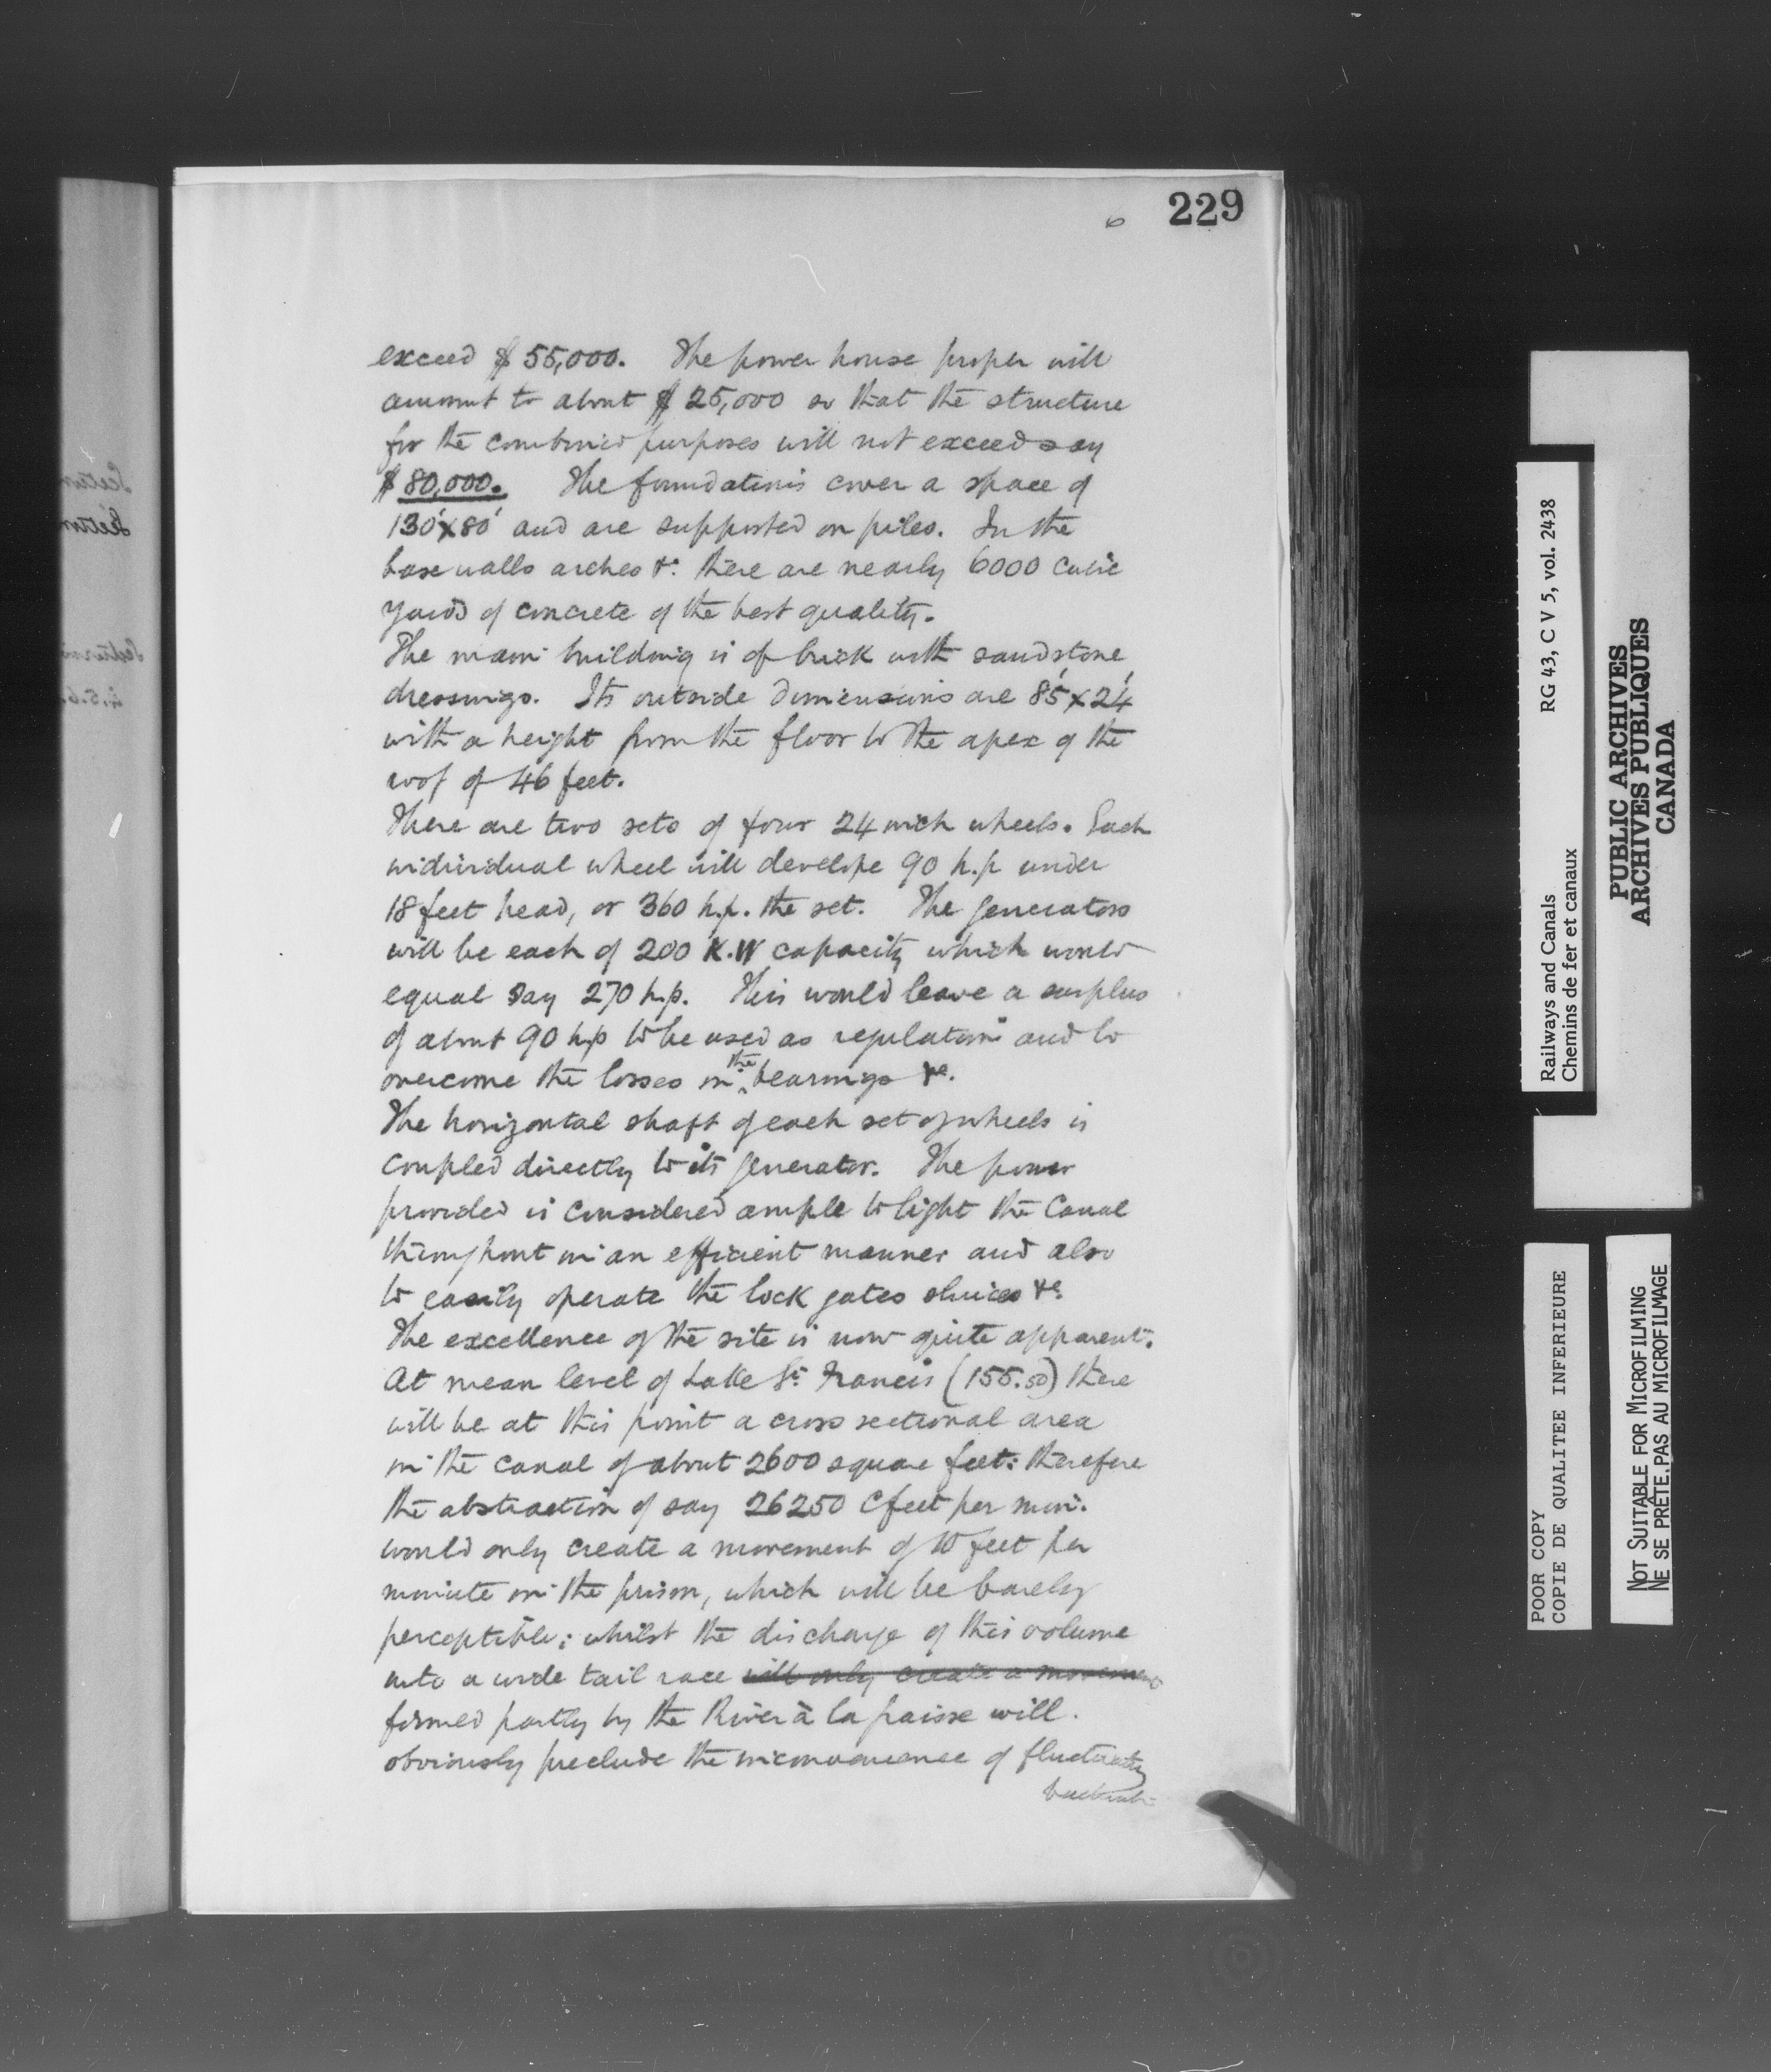 229
6
exceed $55,000. The power house proper will
amount to about $25,000 so that the structure
for the combined purposes will not exceed say
$80,000. The foundations cover a space of
130'x80' and are supported on piles. In the
base walls arches &c. there are nearly 6000 cubic
yards of concrete of the best quality.
The main building is of brick with sandstone
dressings. Its outside dimensions are 85'x24'
with a height from the floor to the apex of the
roof of 46 feet.
There are two sets of four 24 inch wheels. Each
individual wheel will develope 90 h.p under
18 feet head, or 360 h.p. the set. The generators
will be each of 200 K.W capacity which would
equal say 270 h.p. This would leave a surplus
of about 90 h.p to be used as regulation and to
overcome the losses in the bearings &c.
The horizontal shaft of each set of wheels is
coupled directly to its generator. The power
provided is considered ample to light the Canal
throughout in an efficient manner and also
to easily operate the lock gates sluices &c.
The excellence of the site is now quite apparent.
At mean level of Lake St. Francis (155.50) there
will be at this point a cross sectional area
in the canal of about 2600 square feet: therefore
the abstraction of say 26250 C feet per min.
would only create a movement of 10 feet per
minute in the prism, which will be barely
perceptible; whilst the discharge of this volume
into a wide tail race will only create a movement
formed partly by the River à la graisse will
obviously preclude the inconvenience of fluctuating
RG 43, C V 5, vol. 2438
Railways and Canals
Chemins de fer et canaux
PUBLIC ARCHIVES
ARCHIVES PUBLIQUES
CANADA
POOR COPY
COPIE DE QUALITEE INFERIEURE
NOT SUITABLE FOR MICROFILMING
NE SE PRÊTE PAS AU MICROFILMAGE